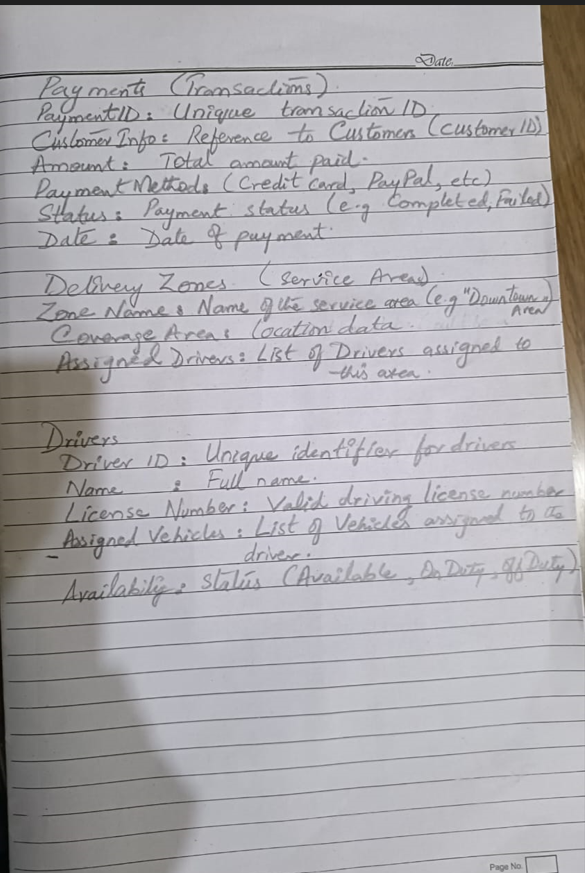 Date.
Payments (Transactions).
PaymentID: Unique transaction ID
Customer Info: Reference to Customers (customer ID)
Amount: Total amount paid.
Payment Methods (Credit card, PayPal, etc)
Status: Payment status (e.g Completed, Failed)
Date: Date of payment.
Delivery Zones. (Service Areas)
Zone Name: Name of the service area (e.g "Downtown"
Area)
Coverage Area: location data.
Assigned Drivers: List of Drivers assigned to
this area.
Drivers
Driver ID: Unique identifier for drivers
Name : Full name.
License Number: Valid driving license number
- Assigned Vehicles: List of Vehicles assigned to a
driver.
Availability: Status (Available, On Duty, Off Duty)
Page No.